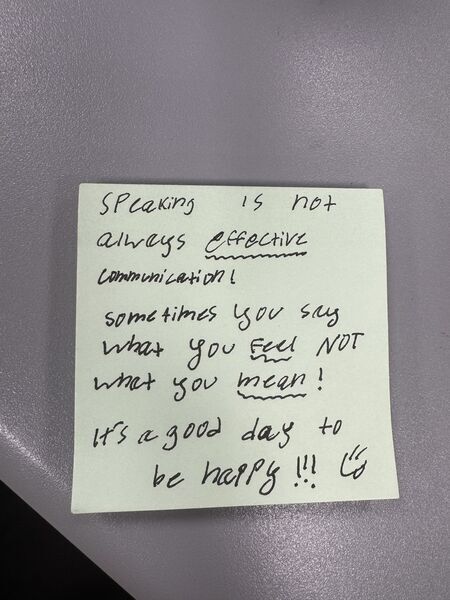 Speaking is not
always effective
communication!
sometimes you say
what you Feel NOT
what you mean!
It's a good day to
be happy!!!